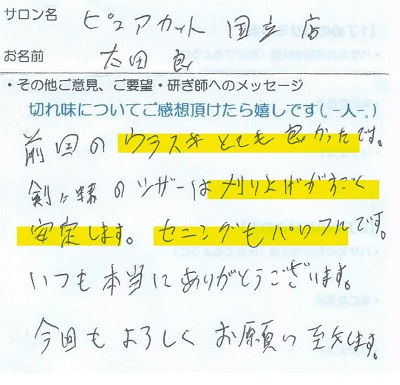 サロン名 ピュアカット 国立店
お名前 太田 良
・その他ご意見、ご要望・研ぎ師へのメッセージ
切れ味についてご感想頂けたら嬉しです(.-人-.)
前回のウラスキとても良かったです。
のシザーは刈り上げがすごく
安定します。セニングもパワフルです。
いつも本当にありがとうございます。
今回もよろしくお願い致します。